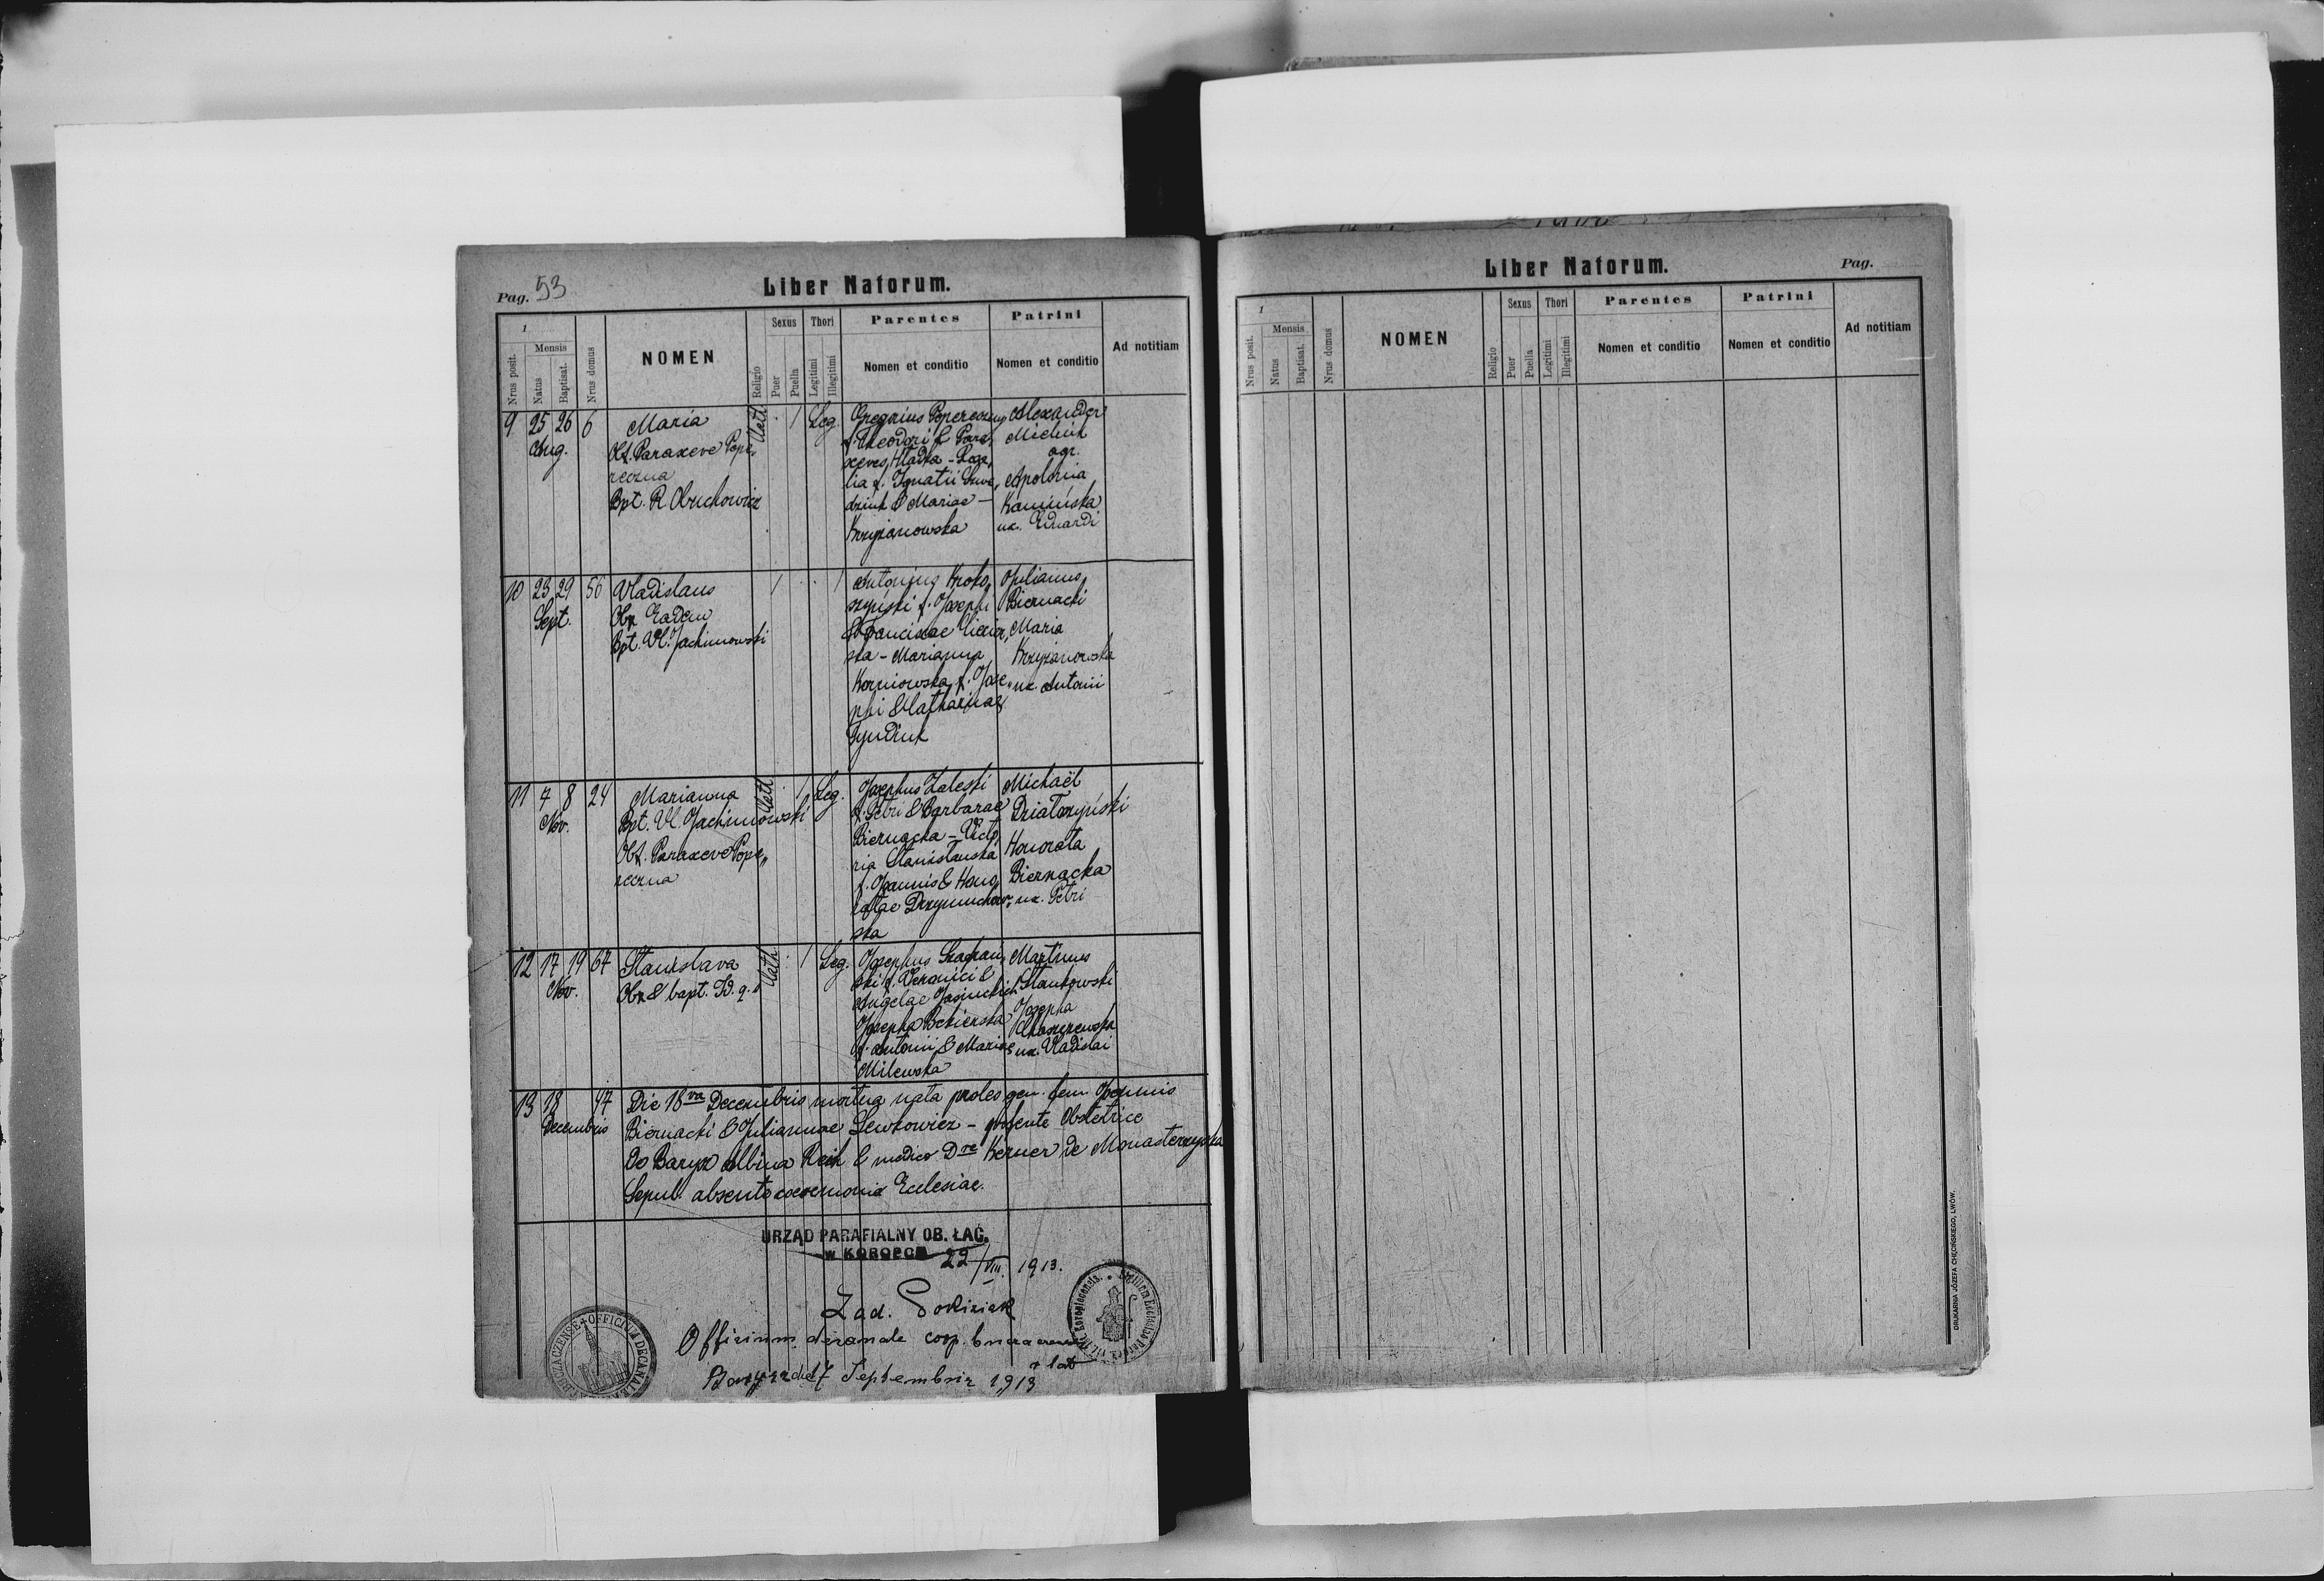 Pag. 53
Liber Natorum.
1
Nrus posit.
Mensis
Natus
Baptisat.
Nrus domus
NOMEN
Religio
Sexus
Puer
Puella
Thori
Legitimi
Illegitimi
Parentes
Nomen et conditio
Patrini
Nomen et conditio
Ad notitiam
9 25 26 6
Aug.
Maria
Obst. Paraxeve Pope,,
reczna
Bpt. R. Obuchowicz
Cath.
1
Leg.
Gregorius Popereczny
f. Theodori & Para,,
xeves Hładka - Roza,,
lia f. Ignatii
& Mariae -
Krzyżanowska
Alexander
Michuk
agr.
Apolonia
Kamińska
ux. Eduardi
10 23 29 56
Sept.
Vladislaus
Obx. Eadem
Bpt. Vl. Jachimowski
1
1
Antonius Kroko,,
szyński f. Josephi
& Franciscae
ska - Marianna
Korniowska f. Jose,,
phi & Catharinae
Tyndiuk
Julianus
Biernacki
Maria
Krzyżanowska
ux. Antonii
11 7 8 24
Nov.
Marianna
Bpt. Vl. Jachimowski
Obst. Paraxeve Pope,,
reczna
Cath.
1
Leg.
Josephus Zaleski
f. Petri & Barbarae
Biernacka - Victo,,
ria Stanisławska
f. Joannis & Hono,,
ratae
ska
Michaël
Działoszyński
Honorata
Biernacka
ux. Petri
12 17 19 67
Nov.
Stanislava
Obx & bapt. Id. q. s.
Cath.
1
Leg.
Josephus
ski f. &
Angelae Jasinskich
Josepha Bekierska
f. Antonii & Mariae
Milewska
Martinus
Stankowski
Josepha
ux. Vladislai
13 18 47
Decembris
Die 18va Decembris mortua nata proles gen. fem. Joannis
Biernacki & Juliannae Lewkowicz - praesente Obstetrice
de Barysz Albina Reich & medico Dre Kerner de Monasterzyska
Sepul. absente caeremonia Ecclesiae.
URZĄD PARAFIALNY OB. ŁAC.
w KOROPCU
22/VIII. 1913.
Officium decanale
Septembris 1913
BUCZACZENSE + OFFICIUM DECANALE
Liber Natorum.
Pag.
1
Nrus posit.
Mensis
Natus
Baptisat.
Nrus domus
NOMEN
Religio
Sexus
Puer
Puella
Thori
Legitimi
Illegitimi
Parentes
Nomen et conditio
Patrini
Nomen et conditio
Ad notitiam
DRUKARNIA JÓZEFA CHĘCIŃSKIEGO, LWÓW.